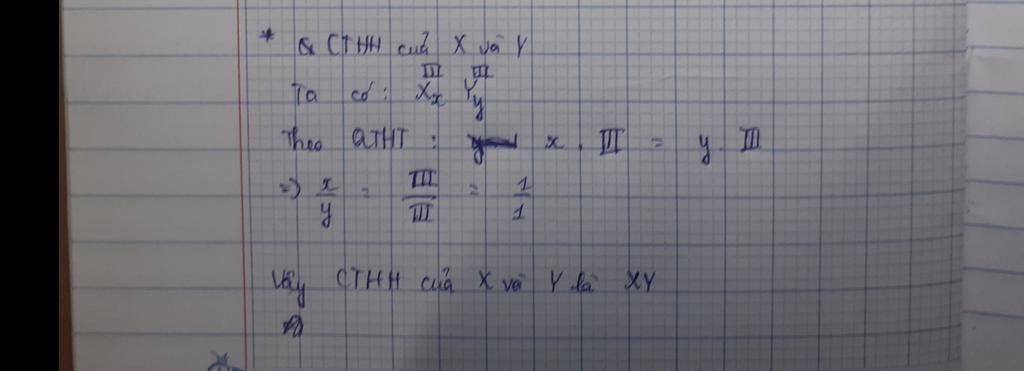 * CTHH của X và Y
III III
Ta có: Xx Yy
Theo QTHT : x . III = y . III
=) x/y = III/III = 1/1
Vậy CTHH của X và Y là XY